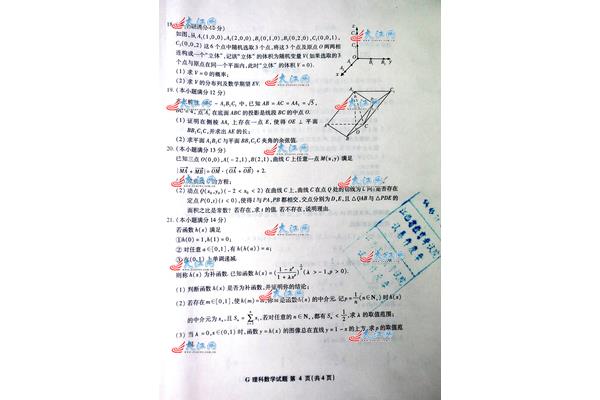 18.(本小题满分12分)
如图,从A₁(1,0,0),A₂(2,0,0),B₁(0,1,0),B₂(0,2,0),C₁(0,0,1),
C₂(0,0,2)这6个点中随机选取3个点,将这3个点及原点O两两相
连构成一个"立体",记该"立体"的体积为随机变量V(如果选取的3
个点与原点在同一个平面内,此时"立体"的体积V=0).
(1)求V=0的概率;
(2)求V的分布列及数学期望EV.
19.(本小题满分12分)
-A₁B₁C₁中,已知AB=AC=AA₁=√5,
BC=4,点A₁在底面ABC的投影是线段BC的中点O.
(1)证明在侧棱AA₁上存在一点E,使得OE⊥平面
BB₁C₁C,并求出AE的长;
(2)求平面A₁B₁C与平面BB₁C₁C夹角的余弦值.
20.(本小题满分13分)
已知三点O(0,0),A(-2,1),B(2,1),曲线C上任意一点M(x,y)满足
|MA+MB|=OM·(OA+OB)+2.
的方程;
(2)动点Q(x₀,y₀)(-2<x₀<2)在曲线C上,曲线C在点Q处的切线为l.问:是否存在
定点P(0,t)(t<0),使得l与PA,PB都相交,交点分别为D,E,且△QAB与△PDE的
面积之比是常数?若存在,求t的值.若不存在,说明理由.
21.(本小题满分14分)
若函数h(x)满足
①h(0)=1,h(1)=0;
②对任意a∈[0,1],有h(h(a))=a;
③在(0,1)上单调递减.
则称h(x)为补函数.已知函数h(x)=((1-xᵖ)/(1+λxᵖ))^(1/p)(λ>-1,p>0).
(1)判断函数h(x)是否为补函数,并证明你的结论;
(2)若存在m∈[0,1],使h(m)=m,称m是函数h(x)的中介元.记p=1/n(n∈N₊)时h(x)
的中介元为xₙ,且Sₙ=∑xᵢ,若对任意的n∈N₊,都有Sₙ<1/2,求λ的取值范围;
(3)当λ=0,x∈(0,1)时,函数y=h(x)的图像总在直线y=1-x的上方,求p的取值范
围.
G 理科数学试题 第4页(共4页)
大江网